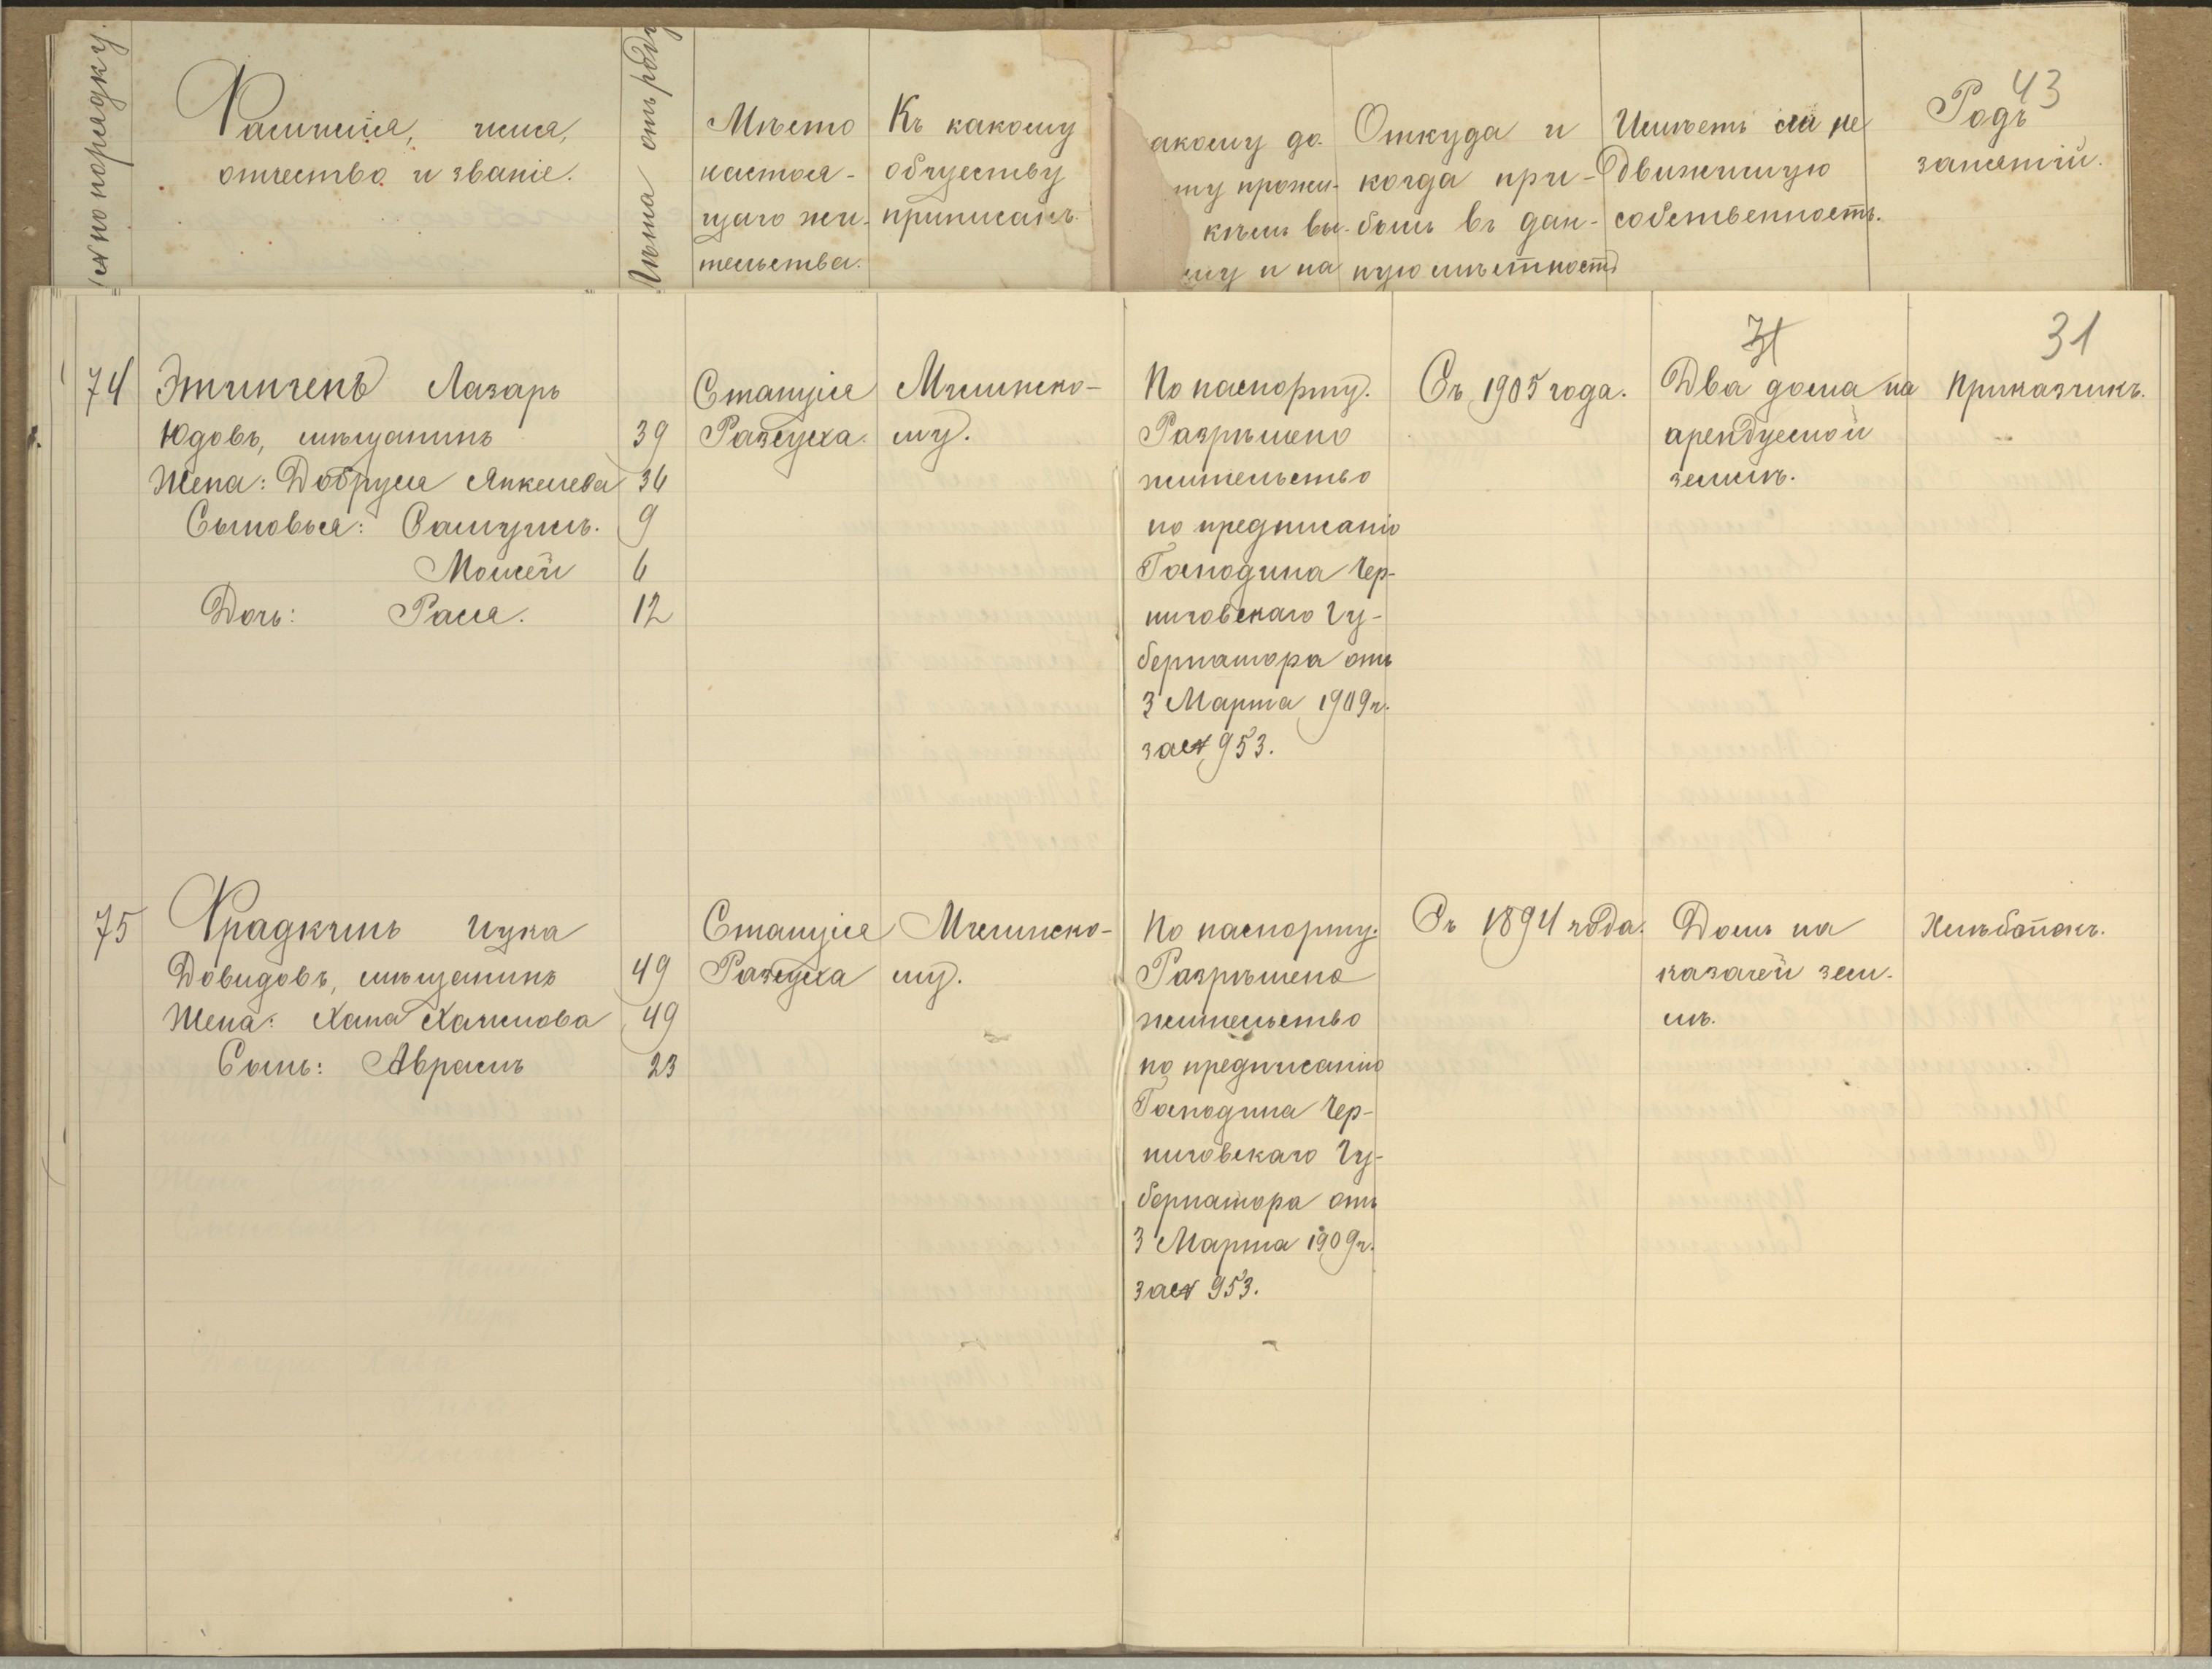 № по порядку
Фамилія, имя,
отчество и званіе.
Лѣта отъ роду
Мѣсто
настоя-
щаго жи-
тельства.
Къ какому
обществу
приписанъ.
акому до-
ту прожи-
кѣмъ вы-
му и на
Откуда и
когда при-
былъ въ дан-
ную мѣстность
Имѣетъ ли не
движимую
собственность.
Родъ
занятій.
43
31
74
Этинченъ Лазарь
Юдовъ, мѣщанинъ 39
Жена: Добруля Янкелева 36
Сыновья: Самуилъ. 9
Мойсей 6
Дочь: Рася. 12
Станція
Разсуха.
Мглинско-
му.
По паспорту.
Разрѣшено
жительство
по предписанію
Господина Чер-
ниговскаго Гу-
бернатора отъ
3 Марта 1909 г.
за № 953.
Съ 1905 года.
Два дома на
арендуемой
землѣ.
Приказчикъ.
75
Фрадкинъ Ицка
Довидовъ, мѣщанинъ 49
Жена: Хана Хаимова 49
Сынъ: Абрамъ 23
Станція
Разсуха
Мглинско-
му.
По паспорту.
Разрѣшено
жительство
по предписанію
Господина Чер-
ниговскаго Гу-
бернатора отъ
3 Марта 1909 г.
за № 953.
Съ 1894 года.
Домъ на
казачей зем-
лѣ.
Хлѣбопекъ.